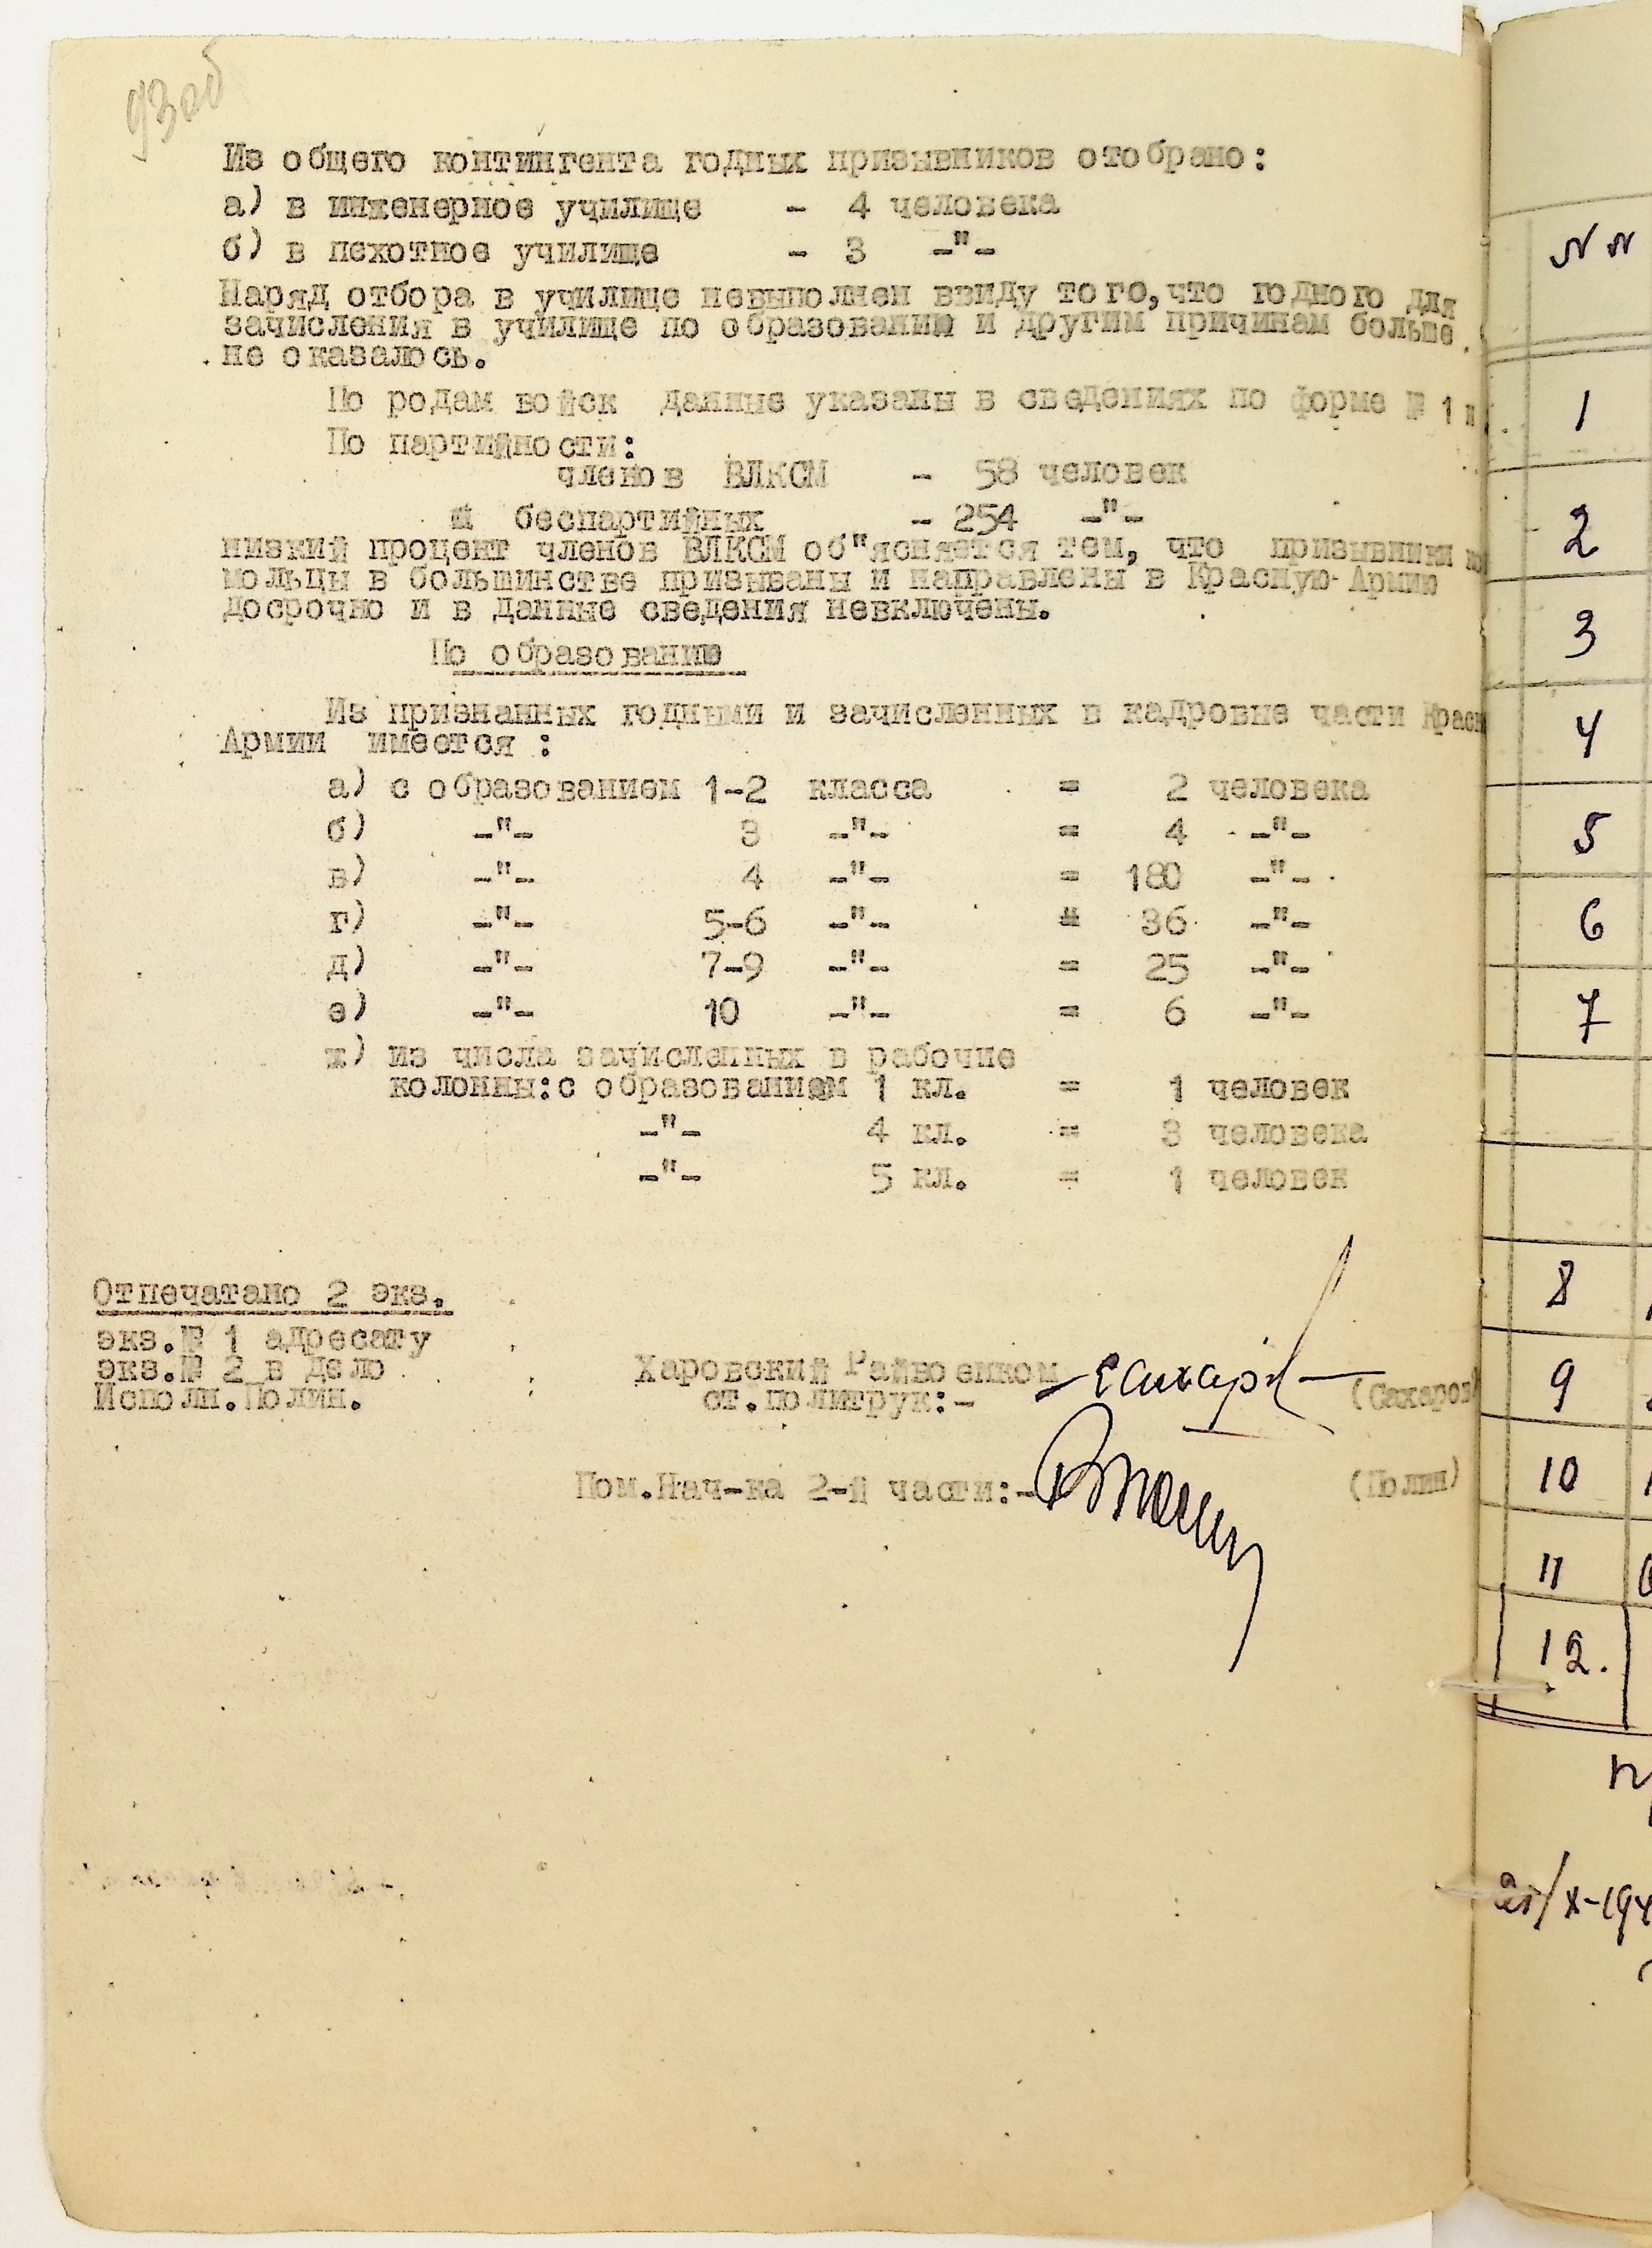 93об
Из общего контингента годных призывников отобрано:
а) в инженерное училище - 4 человека
б) в пехотное училище - 3 -"-
Наряд отбора в училище невыполнен ввиду того,что годного для
зачисления в училище по образованию и другим причинам больше
не оказалось.
По родам войск данные указаны в сведениях по форме № 1
По партийности:
членов ВЛКСМ - 58 человек
беспартийных - 254 -"-
низкий процент членов ВЛКСМ об"ясняется тем, что призывники
мольцы в большинстве призываны и направлены в Красную Армию
досрочно и в данные сведения невключены.
По образованию
Из признанных годными и зачисленных в кадровые части Красн
Армии имеется :
а) с образованием 1-2 класса = 2 человека
б) -"- 3 -"- = 4 -"-
в) -"- 4 -"- = 180 -"-
г) -"- 5-6 -"- = 36 -"-
д) -"- 7-9 -"- = 25 -"-
е) -"- 10 -"- = 6 -"-
ж) из числа зачисленных в рабочие
колонны:с образованием 1 кл. = 1 человек
-"- 4 кл. = 3 человека
-"- 5 кл. = 1 человек
Отпечатано 2 экз.
экз.№ 1 адресату
экз.№ 2 в дело
Исполн.Полин.
Харовский Райвоенком
ст.политрук:- Сахаров (Сахаров)
Пом.Нач-ка 2-й части:- (Полин)
№№
1
2
3
4
5
6
7
8
9
10
11
12.
21/X-194